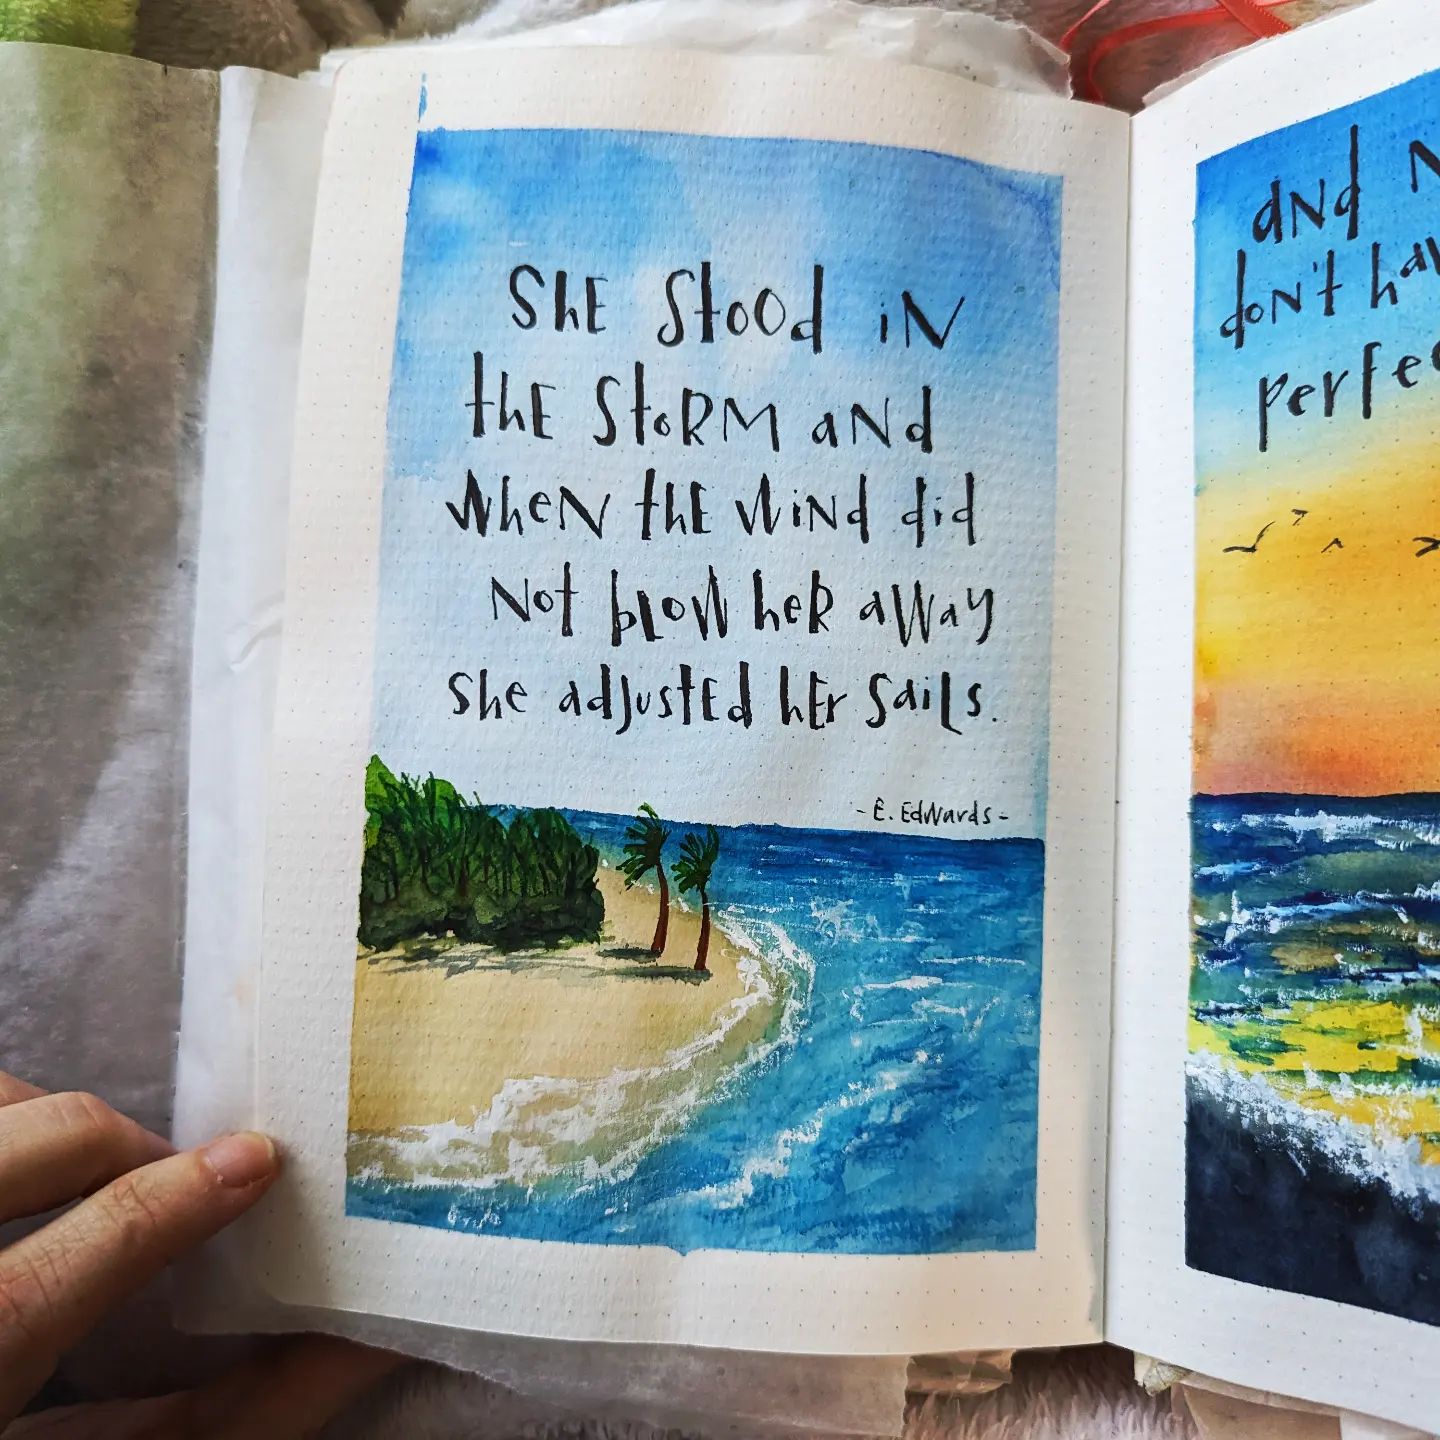 ShE Stood iN
thE StoRM aNd
WheN thE WiNd did
Not bLoW heR aWay
She adjustEd hEr SaiLs.
- E. EdWards -
aNd
doN't
perfe